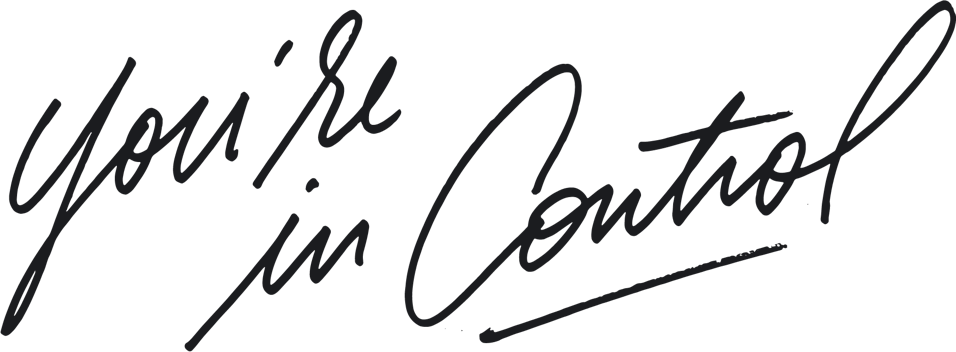 you're
in Control